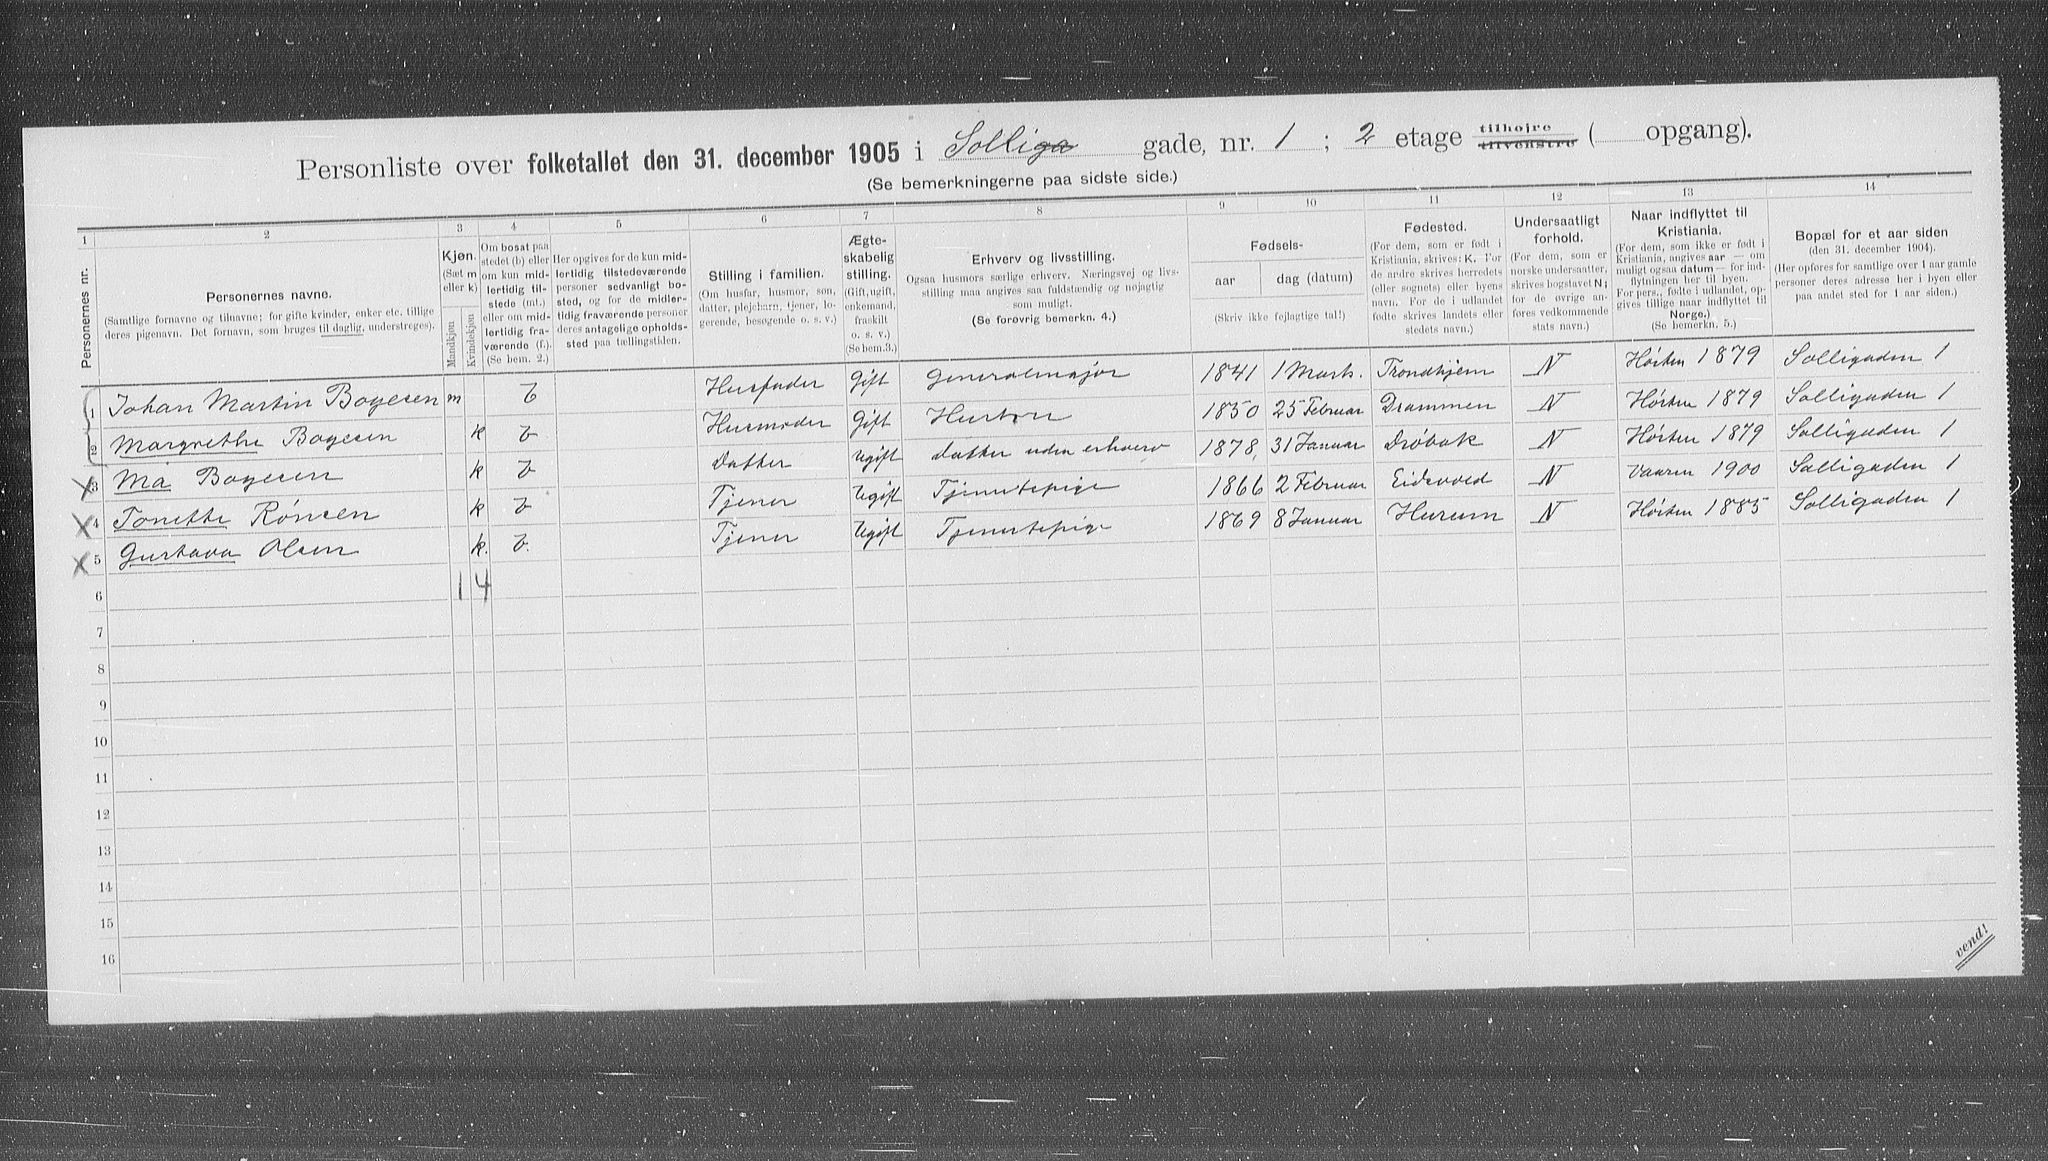 Personliste over folketallet den 31. december 1905 i Solliga gade, nr. 1 ; 2 etage tilhøjre tilvenstre ( opgang).
(Se bemerkningerne paa sidste side.)
1 2 3 4 5 6 7 8 9 10 11 12 13 14
Personernes nr.
Personernes navne.
(Samtlige fornavne og tilnavne; for gifte kvinder, enker etc. tillige
deres pigenavn. Det fornavn, som bruges til daglig, understreges).
Kjøn.
(Sæt m
eller k)
Mandkjøn
Kvindekjøn
Om bosat paa
stedet (b) eller
om kun mid-
lertidig til-
stede (mt.)
eller om mid-
lertidig fra-
værende (f.).
(Se bem. 2.)
Her opgives for de kun mid-
lertidig tilstedeværende
personer sedvanligt bo-
sted, og for de midler-
tidig fraværende personer
deres antagelige opholds-
sted paa tællingstiden.
Stilling i familien.
(Om husfar, husmor, søn,
datter, plejebarn, tjener, lo-
gerende, besøgende o. s. v.)
Ægte-
skabelig
stilling.
(Gift, ugift,
enkemand,
fraskilt
o. s. v.)
(Se bem.3.)
Erhverv og livsstilling.
Ogsaa husmors særlige erhverv. Næringsvej og livs-
stilling maa angives saa fuldstændig og nøjagtig
som muligt.
(Se forøvrig bemerkn. 4.)
Fødsels-
aar dag (datum)
(Skriv ikke fejlagtige tal!)
Fødested.
(For dem, som er født i
Kristiania, skrives: K. For
de andre skrives herredets
(eller sognets) eller byens
navn. For de i udlandet
fødte skrives landets eller
stedets navn.)
Undersaatligt
forhold.
(For dem, som er
norske undersaatter,
skrives bogstavet N;
for de øvrige an-
føres vedkommende
stats navn.)
Naar indflyttet til
Kristiania.
(For dem, som ikke er født i
Kristiania, angives aar — om
muligt ogsaa datum — for ind-
flytningen her til byen.
For pers., fødte i udlandet, op-
gives tillige naar indflyttet til
Norge.)
(Se bemerkn. 5.)
Bopæl for et aar siden
(den 31. december 1904).
(Her opføres for samtlige over 1 aar gamle
personer deres adresse her i byen eller
paa andet sted for 1 aar siden.)
1 Johan Martin Boyesen m b Husfader Gift Generalmajor 1841 1 Marts. Trondhjem N Høsten 1879 Solligaden 1
2 Margrethe Boyesen k b Husmoder Gift Hustru 1850 25 Februar Drammen N Høsten 1879 Solligaden 1
3 Mia Boyesen k b Datter Ugift Datter uden erhverv 1878, 31 Januar Drøbak N Høsten 1879 Solligaden 1
4 Tonette Rønsen k b Tjener Ugift Tjenestepige 1866 2 Februar Eidsvold N Vaaren 1900 Solligaden 1
5 Gustava Olsen k. b. Tjener Ugift Tjenestepige 1869 8 Januar Hurum N Høsten 1885 Solligaden 1
6 1 4
7
8
9
10
11
12
13
14
15
16
vend!